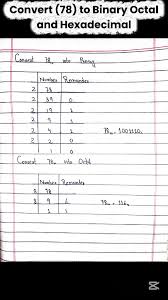 Convert (78) to Binary Octal
and Hexadecimal
Convert 78₁₀ into Binary
Number Remainder
2 78
2 39 0
2 19 1
2 9 1
2 4 1 78₁₀ = 1001110₂
2 2 0
2 1 0
Convert 78₁₀ into Octal
Number Remainder
8 78
8 9 6 78₁₀ = 116₈
1 1